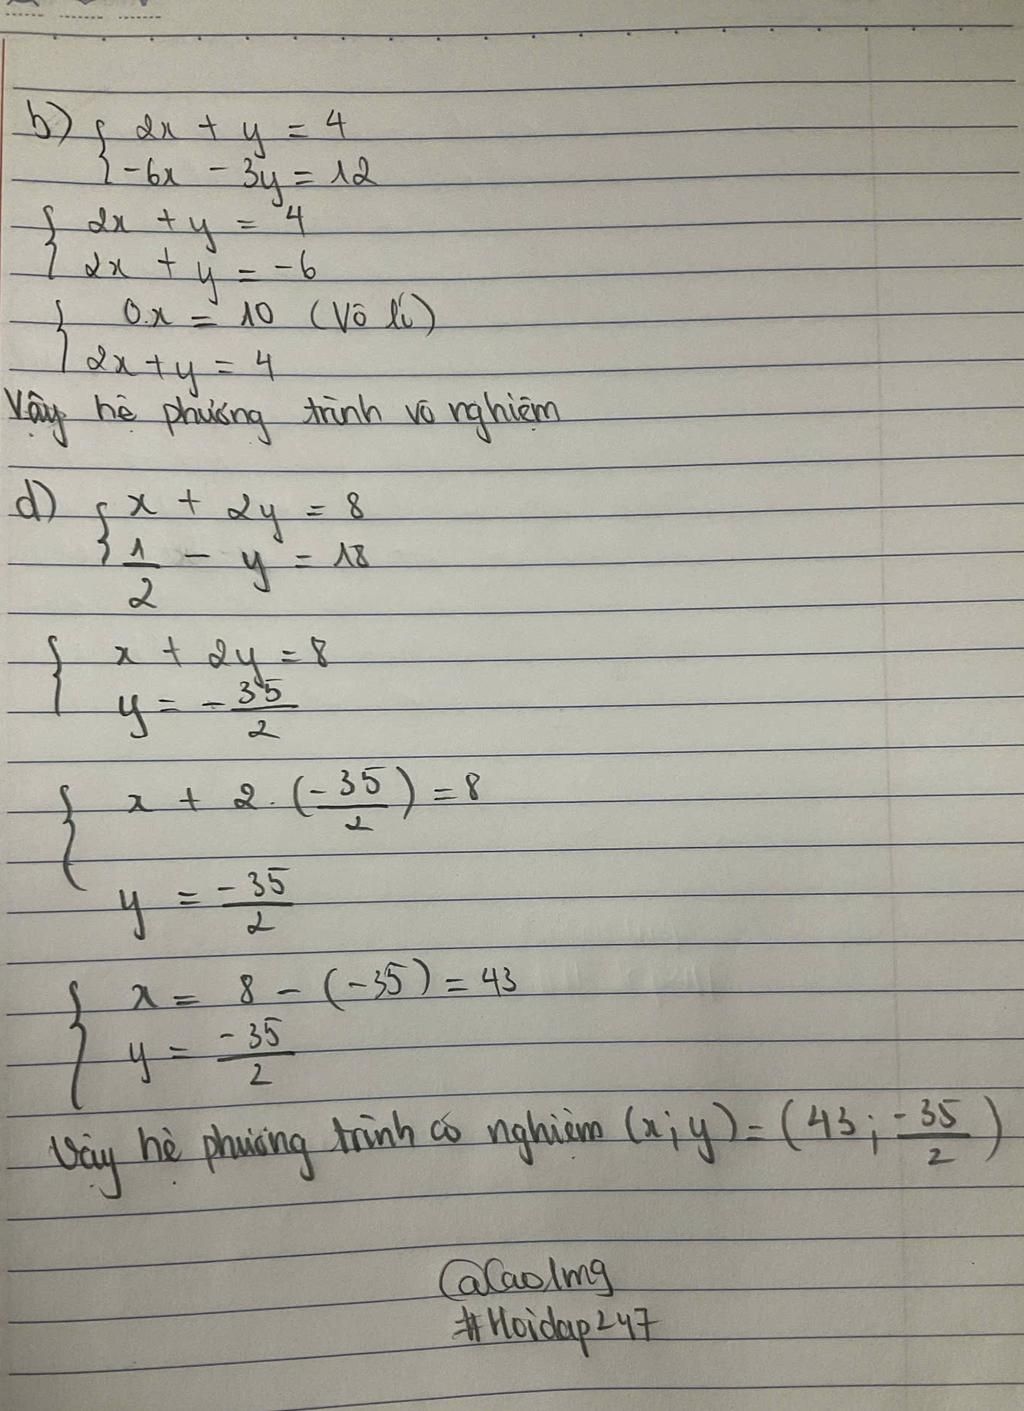 b) { 2x + y = 4
{ -6x - 3y = 12
{ 2x + y = 4
{ 2x + y = -6
{ 0.x = 10 (Vô lí)
{ 2x + y = 4
Vậy hệ phương trình vô nghiệm
d) { x + 2y = 8
{ 1/2 - y = 18
{ x + 2y = 8
{ y = -35/2
{ x + 2.(-35/2) = 8
{ y = -35/2
{ x = 8 - (-35) = 43
{ y = -35/2
Vậy hệ phương trình có nghiệm (x;y) = (43; -35/2)
@Cao1mg
#Hoidap247